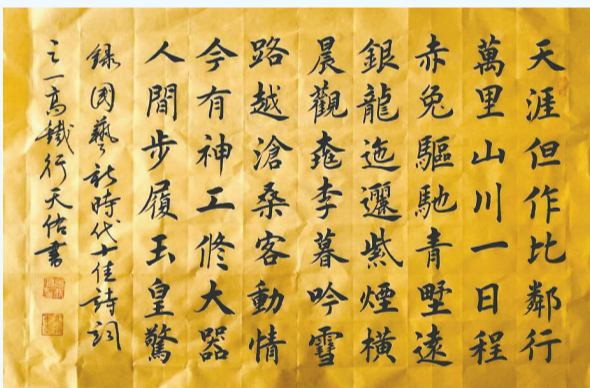 天涯但作比鄰行
萬里山川一日程
赤兔驅馳青墅遠
銀龍迤邐紫煙橫
晨觀桃李暮吟雪
路越滄桑客動情
今有神工修大器
人間步履玉皇驚
錄國藝新時代十佳詩詞
之一高鐵行天佑書